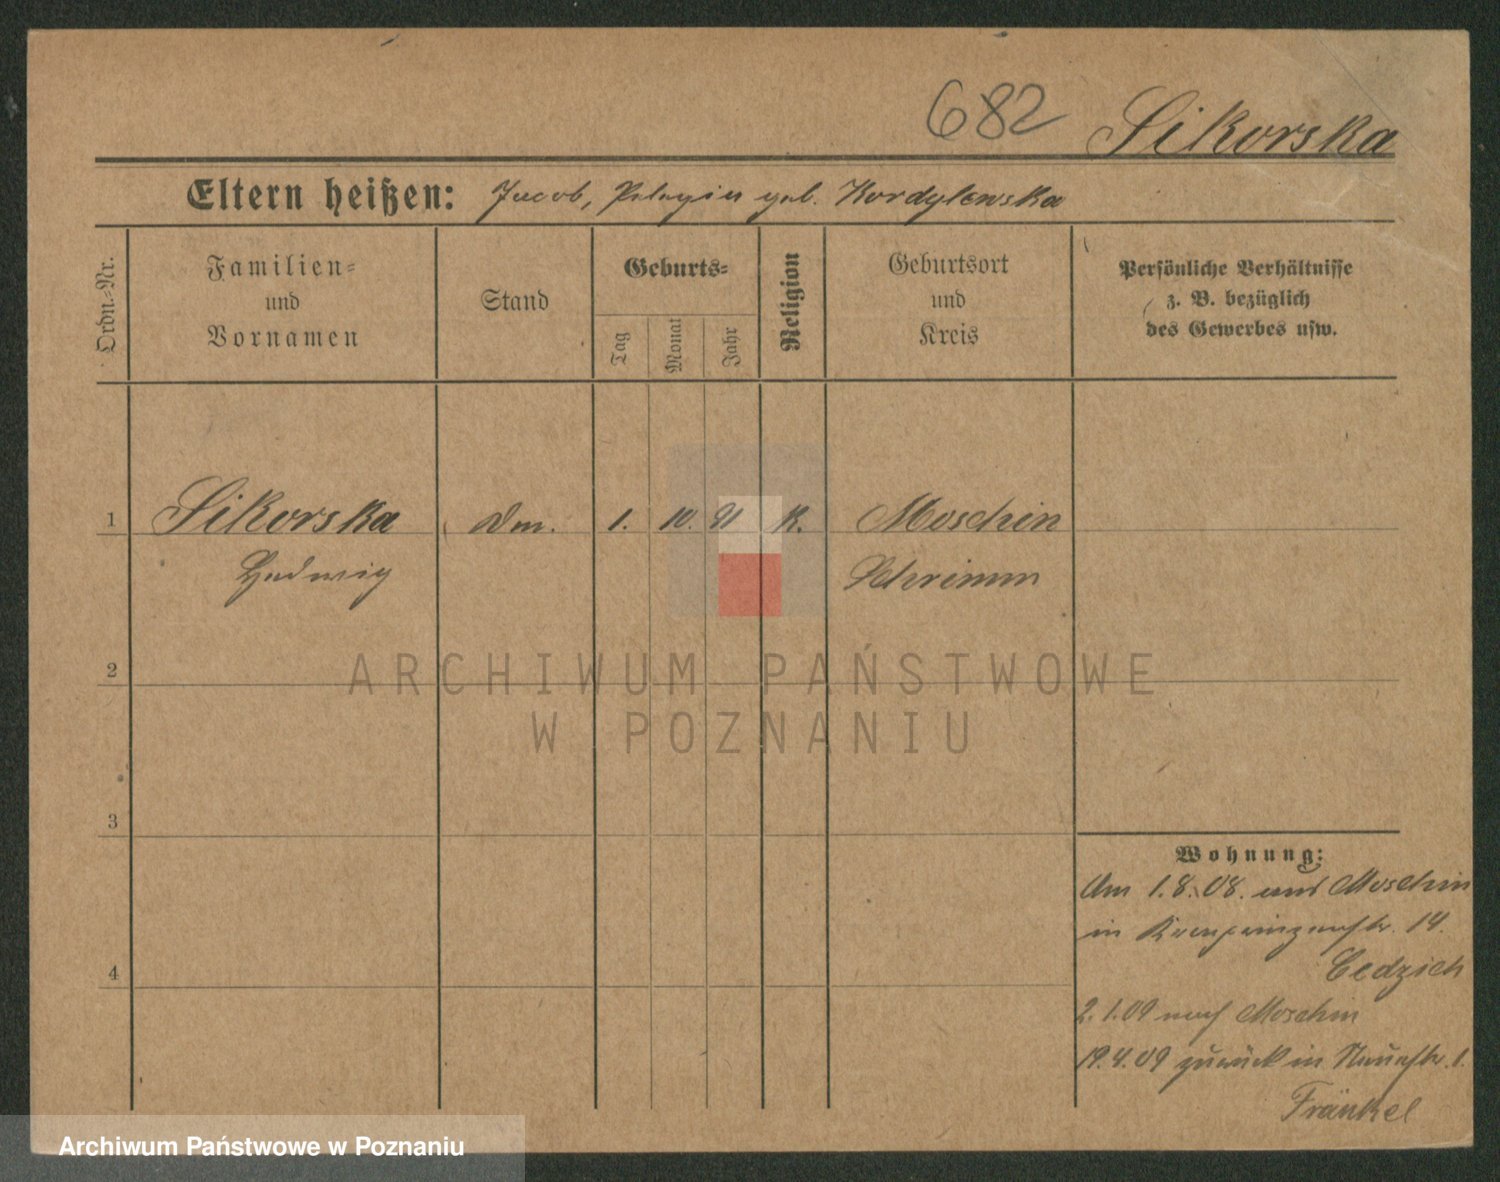 682 Sikorska
Eltern heißen: Jacob, Pelagia geb. Kordylewska
Ordn.-Nr.
Familien-
und
Vornamen
Stand
Geburts-
Tag
Monat
Jahr
Religion
Geburtsort
und
Kreis
Persönliche Verhältnisse
z. B. bezüglich
des Gewerbes usw.
1 Sikorska 1. 10. 91 K. Moschin
Hedwig Schrimm
2
3
4
Wohnung:
Am 1.8.08. aus Moschin
in Kronprinzenstr. 14.
Cedzich
2.1.09 nach Moschin
19.4.09 zurück in Neuestr. 1.
Fränkel
ARCHIWUM PAŃSTWOWE
W POZNANIU
Archiwum Państwowe w Poznaniu